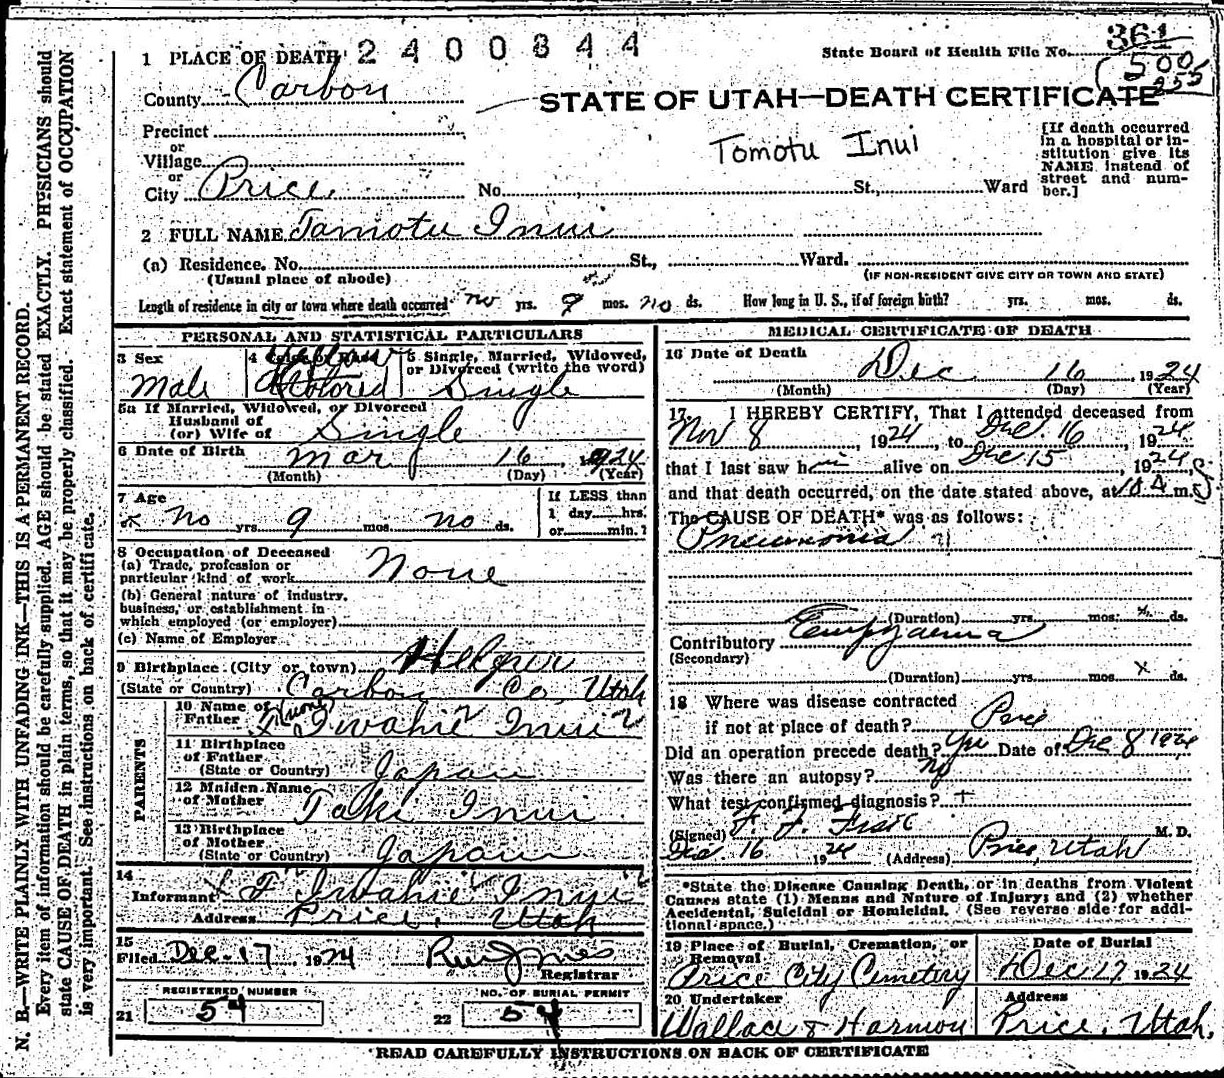 2400844
State Board of Health File No. 361
500
255
1 PLACE OF DEATH
County Carbon
STATE OF UTAH—DEATH CERTIFICATE
Precinct
or
Village
or
City Price No. St., Ward
Tomotu Inui
[If death occurred
in a hospital or in-
stitution give its
NAME instead of
street and num-
ber.]
2 FULL NAME Tamotu Inui
(a) Residence. No. St., Ward.
(Usual place of abode) (IF NON-RESIDENT GIVE CITY OR TOWN AND STATE)
Length of residence in city or town where death occurred no yrs. 9 mos. no ds. How long in U. S., if of foreign birth? yrs. mos. ds.
PERSONAL AND STATISTICAL PARTICULARS
3 Sex
Male
4 Color or Race
Yellow
Colored
5 Single, Married, Widowed,
or Divorced (write the word)
Single
5a If Married, Widowed, or Divorced
Husband of
(or) Wife of Single
6 Date of Birth Mar 16 1924
(Month) (Day) (Year)
7 Age
x no yrs. 9 mos. no ds.
If LESS than
1 day hrs.
or min.?
8 Occupation of Deceased
(a) Trade, profession or
particular kind of work None
(b) General nature of industry,
business, or establishment in
which employed (or employer)
(c) Name of Employer
9 Birthplace (City or town) Helper
(State or Country) Carbon Co, Utah
PARENTS
10 Name of
Father Iwahie Inui
11 Birthplace
of Father
(State or Country) Japan
12 Maiden Name
of Mother Taki Inui
13 Birthplace
of Mother
(State or Country) Japan
14
Informant Iwahie Inui
Address Price, Utah
15
Filed Dec-17 1924
Registrar
REGISTERED NUMBER
21 54
NO. OF BURIAL PERMIT
22 54
MEDICAL CERTIFICATE OF DEATH
16 Date of Death
Dec 16 1924
(Month) (Day) (Year)
17. I HEREBY CERTIFY, That I attended deceased from
Nov 8 1924, to Dec. 16, 1924
that I last saw him alive on Dec 15, 1924,
and that death occurred, on the date stated above, at 10 A m.
The CAUSE OF DEATH* was as follows:
Pneumonia
(Duration) yrs. mos. ds.
Contributory Empyaema
(Secondary)
(Duration) yrs. mos. x ds.
18 Where was disease contracted
if not at place of death? Price
Did an operation precede death? Yes Date of Dec 8 1924
Was there an autopsy? No
What test confirmed diagnosis? +
(Signed) F. F. Fisk M. D.
Dec 16 1924 (Address) Price, Utah
*State the Disease Causing Death, or in deaths from Violent
Causes state (1) Means and Nature of Injury; and (2) whether
Accidental, Suicidal or Homicidal. (See reverse side for addi-
tional space.)
19 Place of Burial, Cremation, or
Removal
Price City Cemetery
Date of Burial
Dec. 17 1924
20 Undertaker
Wallace & Harmon
Address
Price, Utah.
READ CAREFULLY INSTRUCTIONS ON BACK OF CERTIFICATE
N. B.—WRITE PLAINLY WITH UNFADING INK—THIS IS A PERMANENT RECORD.
Every item of information should be carefully supplied. AGE should be stated EXACTLY. PHYSICIANS should
state CAUSE OF DEATH in plain terms, so that it may be properly classified. Exact statement of OCCUPATION
is very important. See instructions on back of certificate.